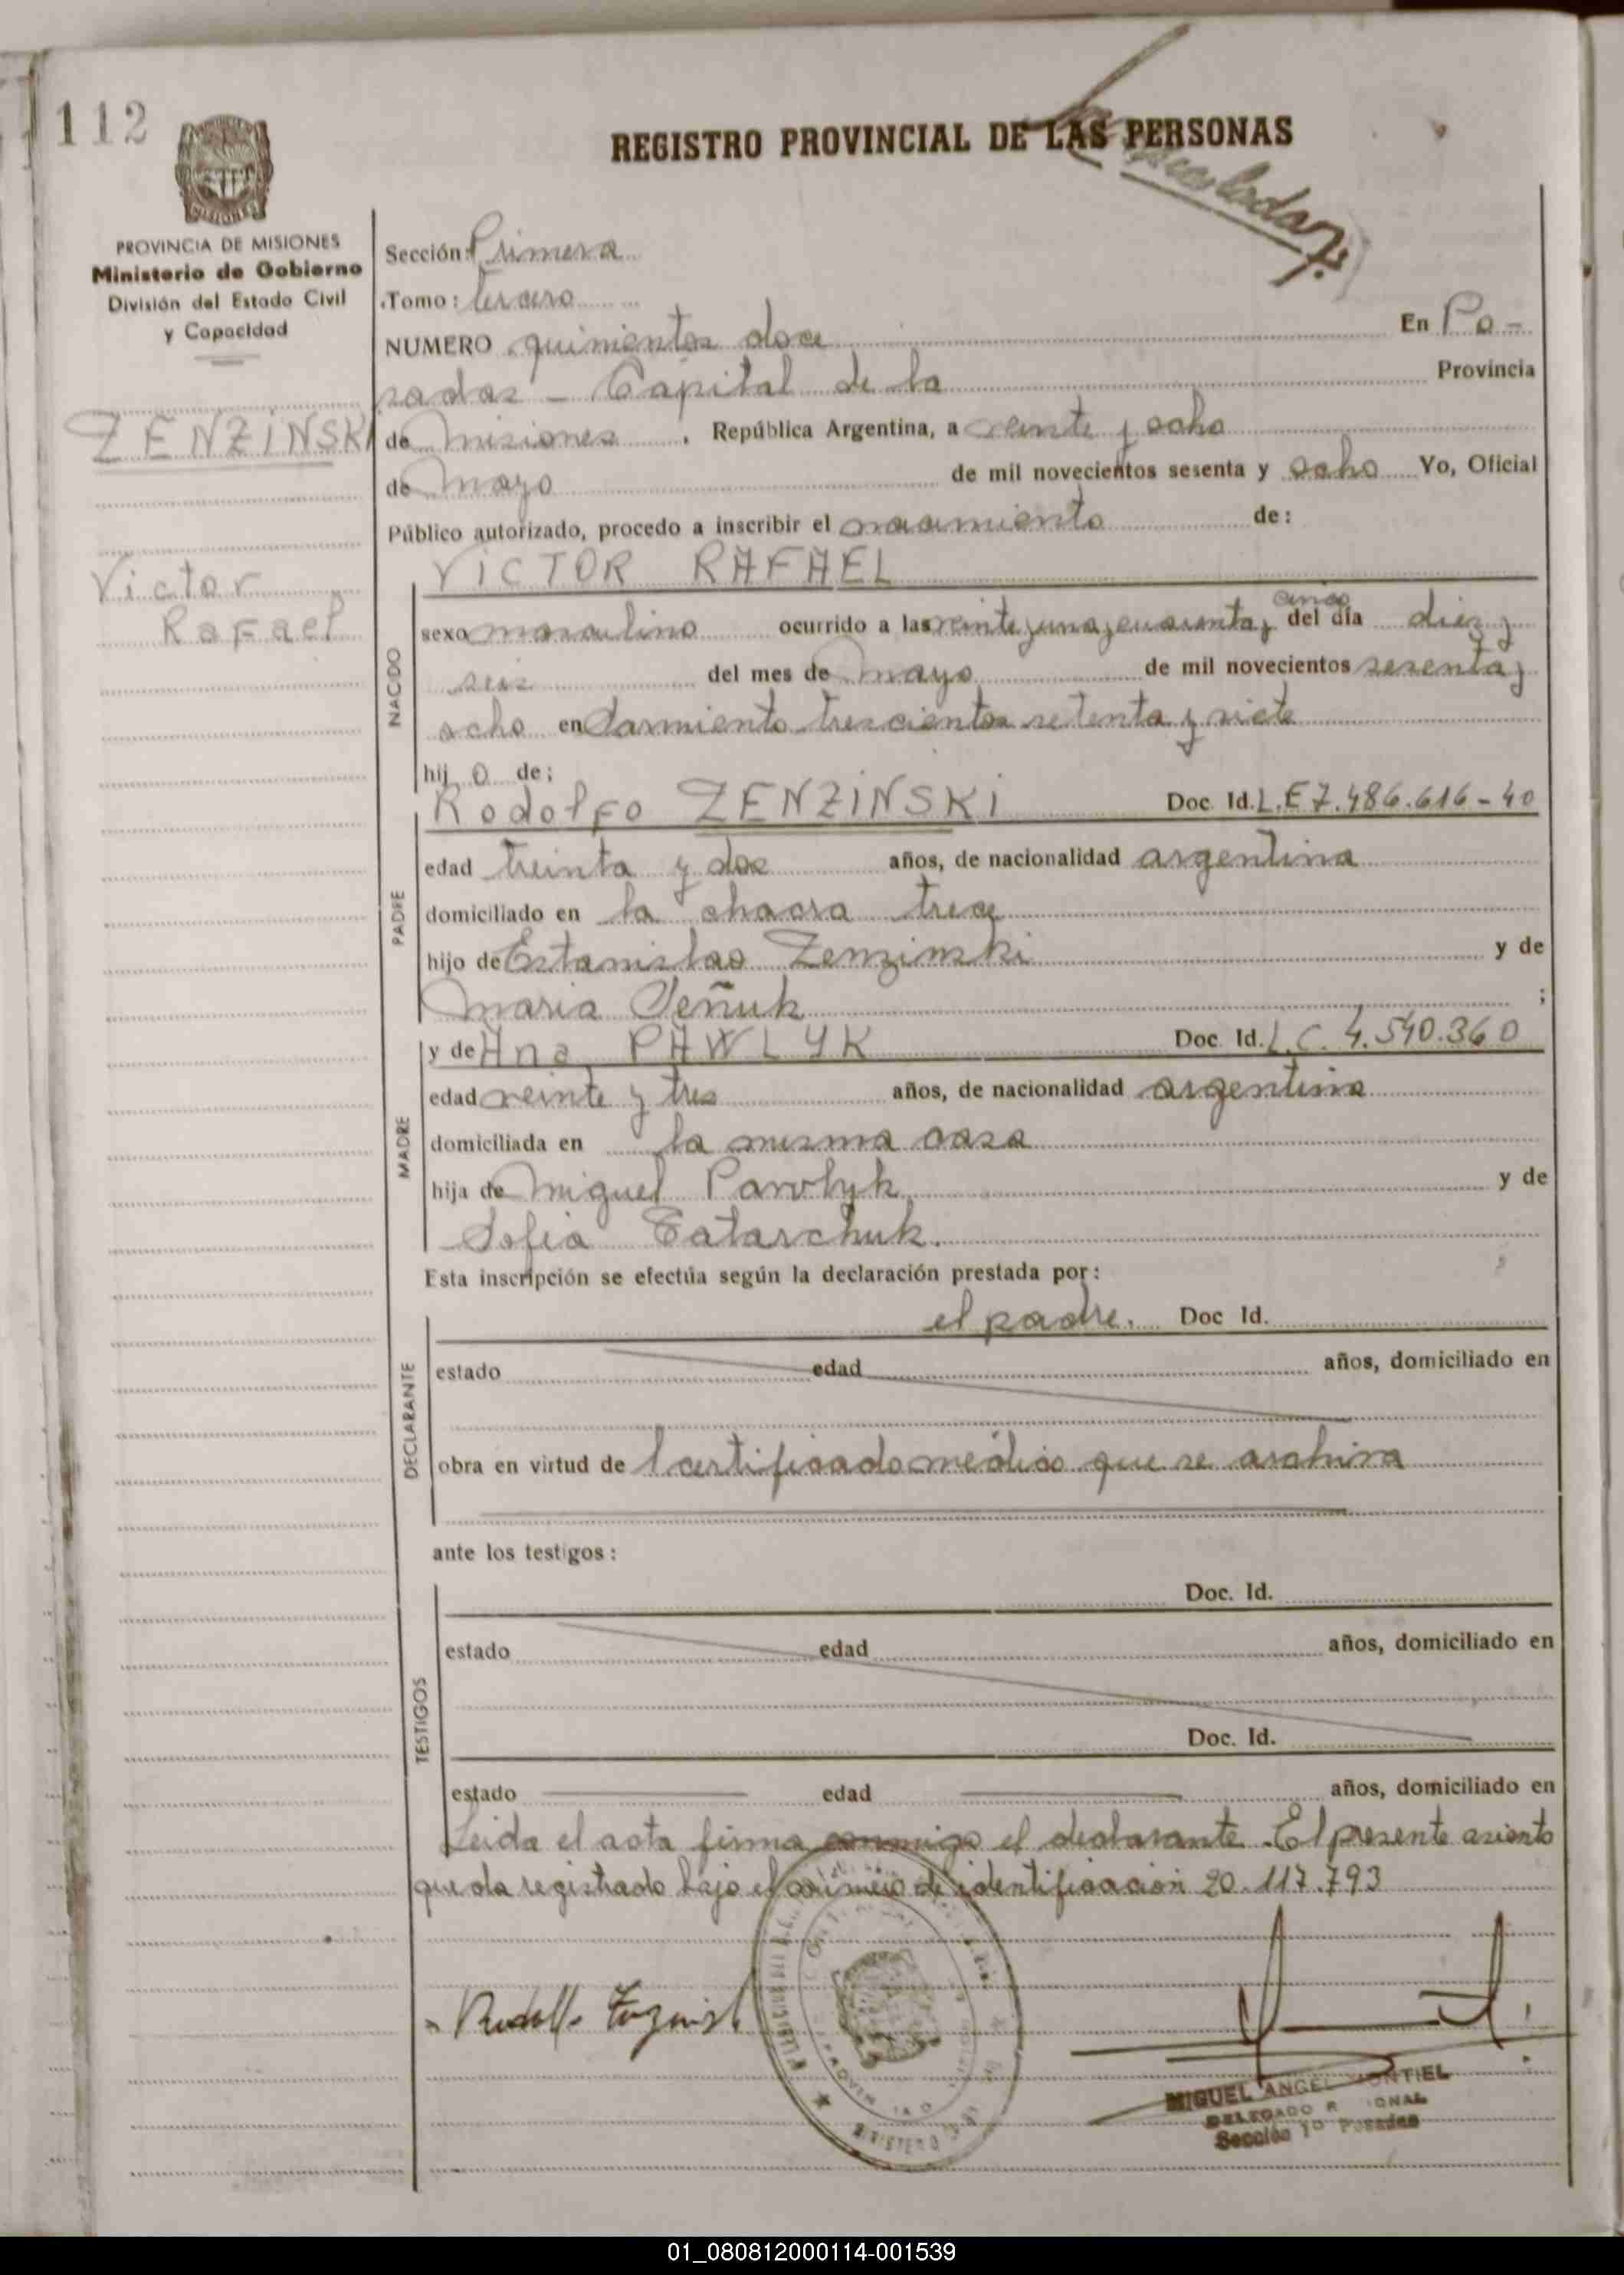 112
REGISTRO PROVINCIAL DE LAS PERSONAS
MISIONES
PROVINCIA DE MISIONES
Ministerio de Gobierno
División del Estado Civil
y Capacidad
ZENZINSKI
Victor
Rafael
Sección: Primera
Tomo: tercero
NUMERO quinientos doce En Po-
sadas - Capital de la Provincia
de Misiones, República Argentina, a veinte y ocho
de Mayo de mil novecientos sesenta y ocho Yo, Oficial
Público autorizado, procedo a inscribir el nacimiento de:
VICTOR RAFAEL
NACIDO
cinco
sexo masculino ocurrido a las veinte y una y cuarenta y del día diez y
seis del mes de mayo de mil novecientos sesenta y
ocho en Sarmiento trescientos setenta y siete
hijo de:
PADRE
Rodolfo ZENZINSKI Doc. Id. L.E 7.486.616-40
edad treinta y dos años, de nacionalidad argentina
domiciliado en la chacra trece
hijo de Estanislao Zenzinski y de
Maria Señuk ;
MADRE
y de Ana PAWLYK Doc. Id. L.C. 4.540.360
edad veinte y tres años, de nacionalidad argentina
domiciliada en la misma casa
hija de Miguel Pawlyk y de
Sofia Tatarchuk.
Esta inscripción se efectúa según la declaración prestada por:
DECLARANTE
el padre. Doc Id.
estado edad años, domiciliado en
obra en virtud de l certificado médico que se archiva
ante los testigos:
TESTIGOS
Doc. Id.
estado edad años, domiciliado en
Doc. Id.
estado edad años, domiciliado en
Leida el acta firma conmigo el declarante. El presente asiento
queda registrado bajo el número de identificación 20.117.793
Rodolfo
MIGUEL ANGEL MONTIEL
DELEGADO
Sección 1º Posadas
01_080812000114-001539